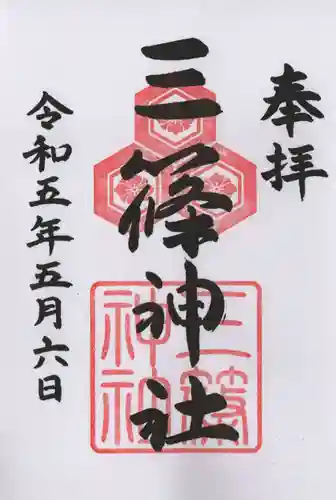 奉拝
三篠神社
三篠神社
令和五年五月六日